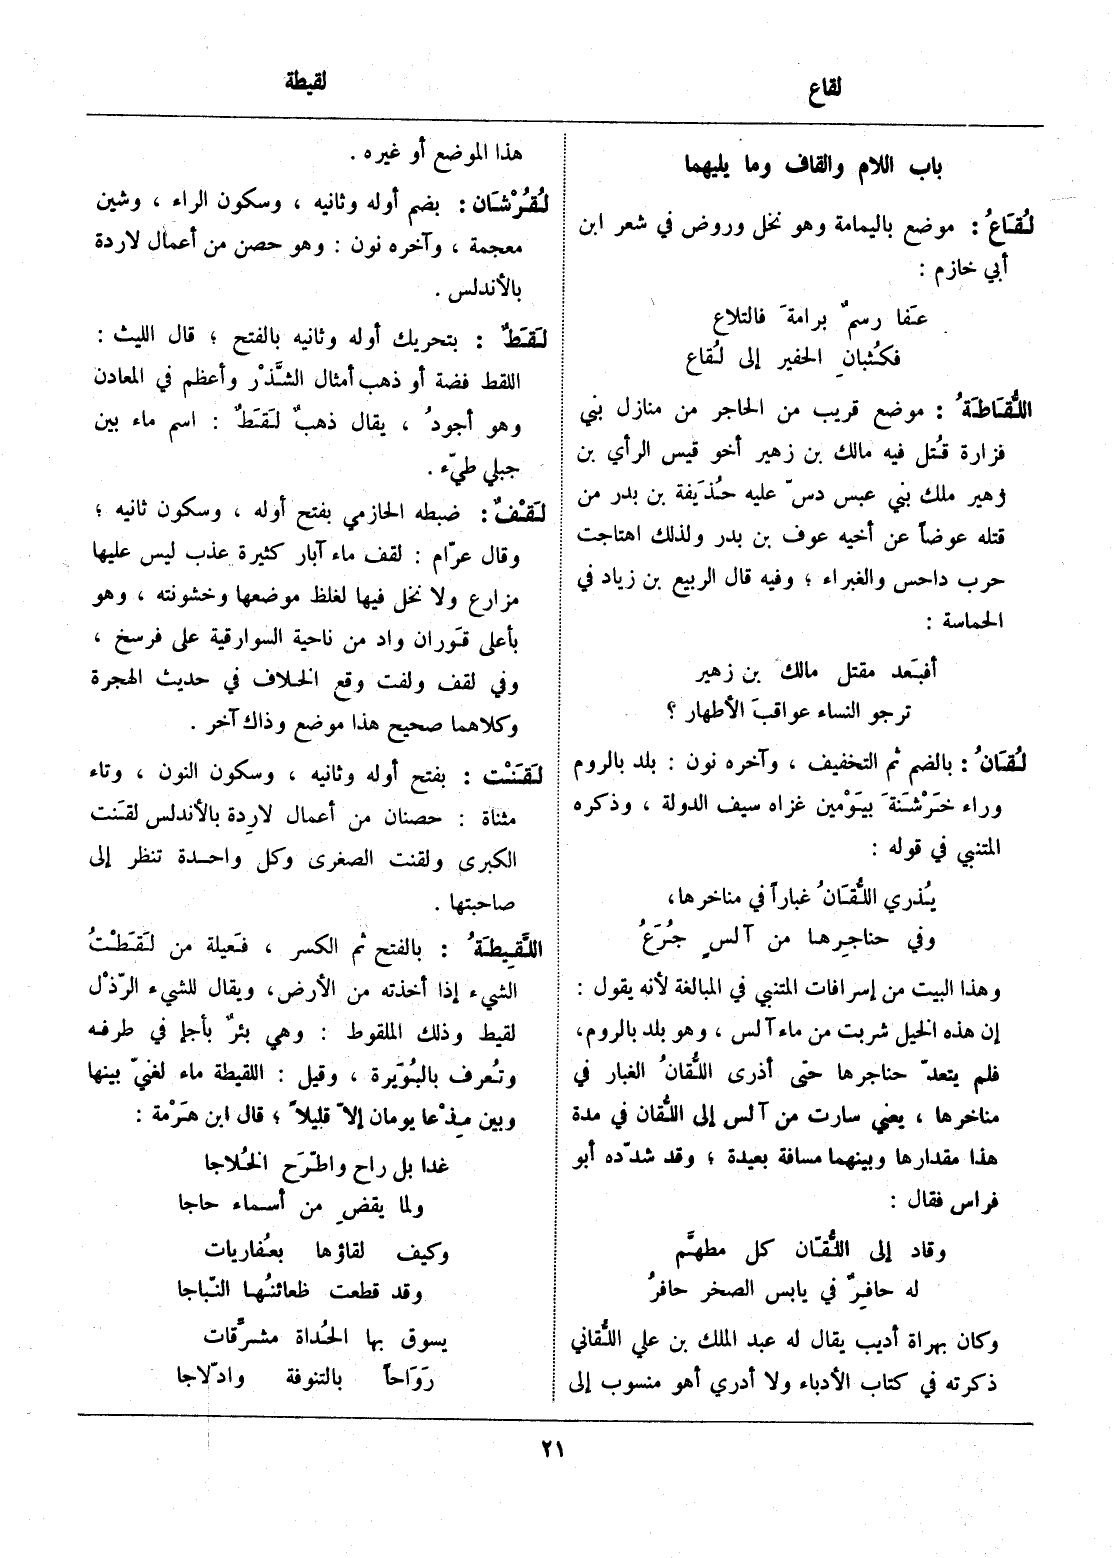 لقاع
لقيطة
باب اللام والقاف وما يليهما
لُقَاعُ : موضع باليمامة وهو نخل وروض في شعر ابن
أبي خازم :
عَفا رسمٌ برامةَ فالتلاع
فكُثبانِ الحفير إلى لُقاع
اللُّقَاطَةُ : موضع قريب من الحاجر من منازل بني
فزارة قُتل فيه مالك بن زهير أخو قيس الرأي بن
زهير ملك بني عبس دسّ عليه حُذَيفة بن بدر من
قتله عوضاً عن أخيه عوف بن بدر ولذلك اهتاجت
حرب داحس والغبراء ؛ وفيه قال الربيع بن زياد في
الحماسة :
أفبَعد مقتل مالك بن زهير
ترجو النساء عواقبَ الأطهار ؟
لُقَانُ : بالضم ثم التخفيف ، وآخره نون : بلد بالروم
وراء خَرْشَنَةَ بيَوْمين غزاه سيف الدولة ، وذكره
المتنبي في قوله :
يُذري اللُّقَانُ غباراً في مناخرها،
وفي حناجِرها من آلسٍ جُرَعُ
وهذا البيت من إسرافات المتنبي في المبالغة لأنه يقول :
إن هذه الخيل شربت من ماء آلس ، وهو بلد بالروم،
فلم يتعدّ حناجرها حتى أذرى اللُّقانُ الغبار في
مناخرها ، يعني سارت من آلس إلى اللُّقان في مدة
هذا مقدارها وبينهما مسافة بعيدة ؛ وقد شدّده أبو
فراس فقال :
وقاد إلى اللُّقّان كل مطهَّم
له حافِرٌ في يابس الصخر حافرُ
وكان بهراة أديب يقال له عبد الملك بن علي اللُّقاني
ذكرته في كتاب الأدباء ولا أدري أهو منسوب إلى
هذا الموضع أو غيره .
لُقُرْشَان : بضم أوله وثانيه ، وسكون الراء ، وشين
معجمة ، وآخره نون : وهو حصن من أعمال لاردة
بالأندلس .
لَقَطٌ : بتحريك أوله وثانيه بالفتح ؛ قال الليث :
اللقط فضة أو ذهب أمثال الشَّذْر وأعظم في المعادن
وهو أجودُ ، يقال ذهبٌ لَقَطٌ : اسم ماء بين
جبلي طيّء .
لَقْفٌ : ضبطه الحازمي بفتح أوله ، وسكون ثانيه ؛
وقال عرّام : لقف ماء آبار كثيرة عذب ليس عليها
مزارع ولا نخل فيها لغلظ موضعها وخشونته ، وهو
بأعلى قَوران واد من ناحية السوارقية على فرسخ ،
وفي لقف ولفت وقع الخلاف في حديث الهجرة
وكلاهما صحيح هذا موضع وذاك آخر .
لَقَنْت : بفتح أوله وثانيه ، وسكون النون ، وتاء
مثناة : حصنان من أعمال لارِدة بالأندلس لقَنت
الكبرى ولقنت الصغرى وكل واحدة تنظر إلى
صاحبتها .
اللَّقِيطَةُ : بالفتح ثم الكسر ، فَعيلة من لَقَطْتُ
الشيء إذا أخذته من الأرض، ويقال للشيء الرّذْل
لقيط وذلك الملقوط : وهي بئرٌ بأجإ في طرفه
وتُعرف بالبُوَيرة ، وقيل : اللقيطة ماء لغنيّ بينها
وبين مِذْعا يومان إلاّ قليلاً ؛ قال ابن هَرْمة :
غدا بل راح واطّرَح الخُلاجا
ولما يقضِ من أسماء حاجا
وكيف لقاؤها بعُفاريات
وقد قطعت ظعائنُها النّباجا
يسوق بها الحُداة مشرّقات
رَوَاحاً بالتنوفة وادّلاجا
٢١